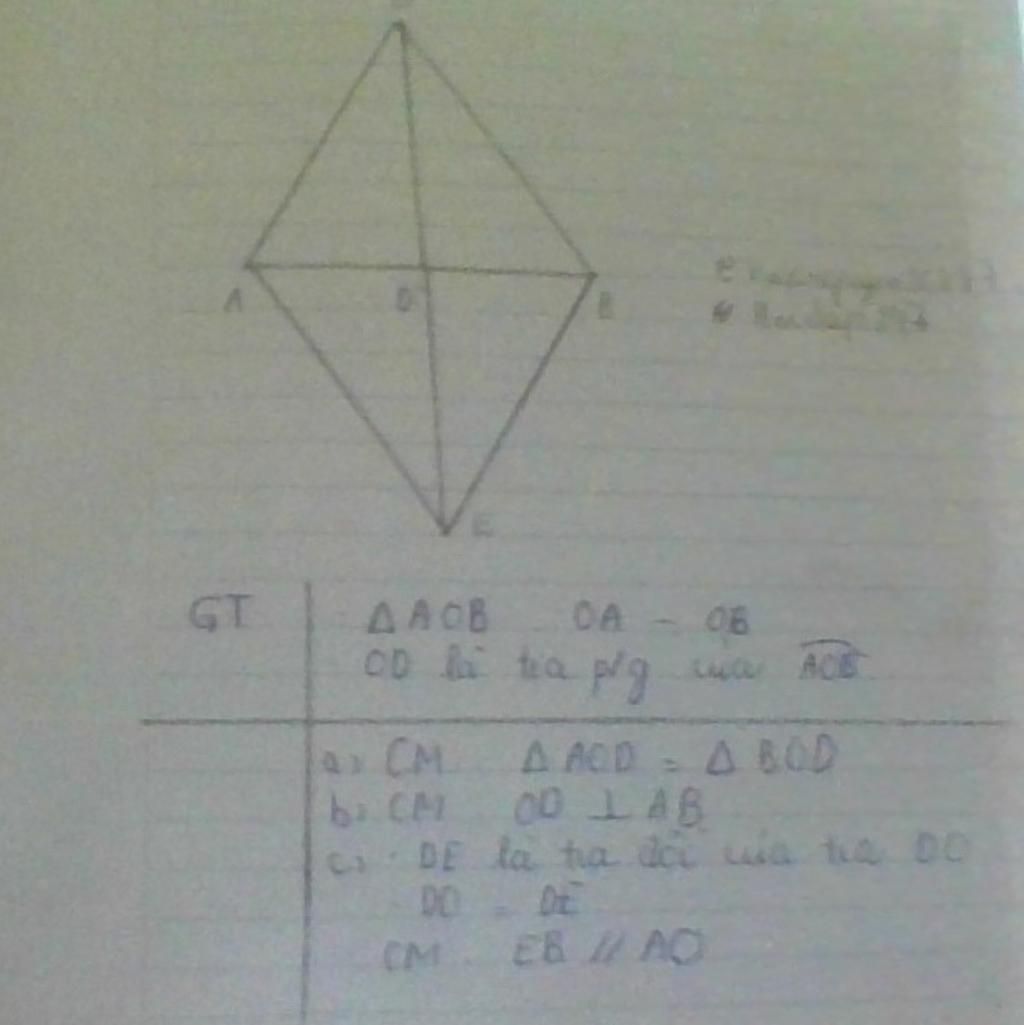 A D B
E
GT ∆ AOB OA = OB
OD là tia p/g của AOB
a, CM ∆ AOD = ∆ BOD
b, CM OD ⊥ AB
c, DE là tia đối của tia DO
DO = DE
CM EB // AO